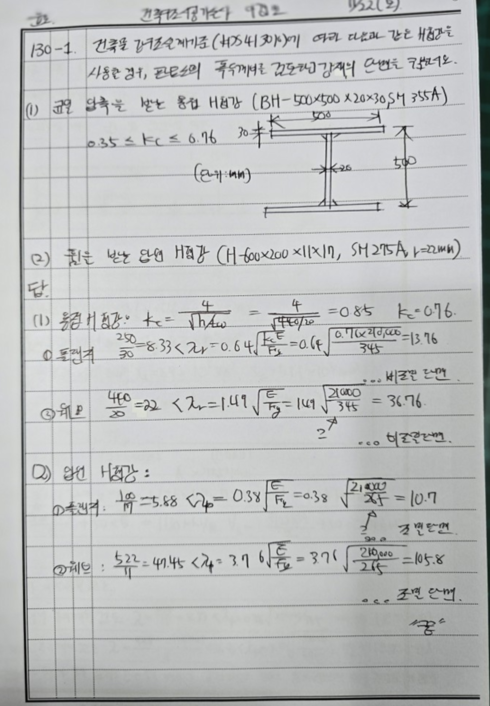 130-1. 건축물 강구조설계기준(KDS 41 30 10)에 따라 다음과 같은 H형강을
사용할 경우, 판요소의 폭두께비를 검토하고 강재의 단면을 구분하시오.
(1) 균일 압축을 받는 용접 H형강 (BH-500×500×20×30, SM355A)
500
0.35 ≤ Kc ≤ 0.76
30
(단위:mm)
20
500
(2) 휨을 받는 압연 H형강 (H-600×200×11×17, SM275A, r=22mm)
답.
(1) 용접 H형강: Kc = 4/√(h/tw) = 4/√(440/20) = 0.85 Kc=0.76.
① 플랜지 250/30 = 8.33 < λr = 0.64√(KcE/Fy) = 0.64√(0.76×210,000/345) = 13.76
... 비조밀단면.
② 웨브 440/20 = 22 < λr = 1.49√(E/Fy) = 1.49√(210000/345) = 36.76.
... 비조밀단면.
(2) 압연 H형강:
① 플랜지. 100/17 = 5.88 < λp = 0.38√(E/Fy) = 0.38√(210000/265) = 10.7
조밀단면.
② 웨브: 522/11 = 47.45 < λp = 3.76√(E/Fy) = 3.76√(210,000/265) = 105.8
... 조밀단면.
"끝"